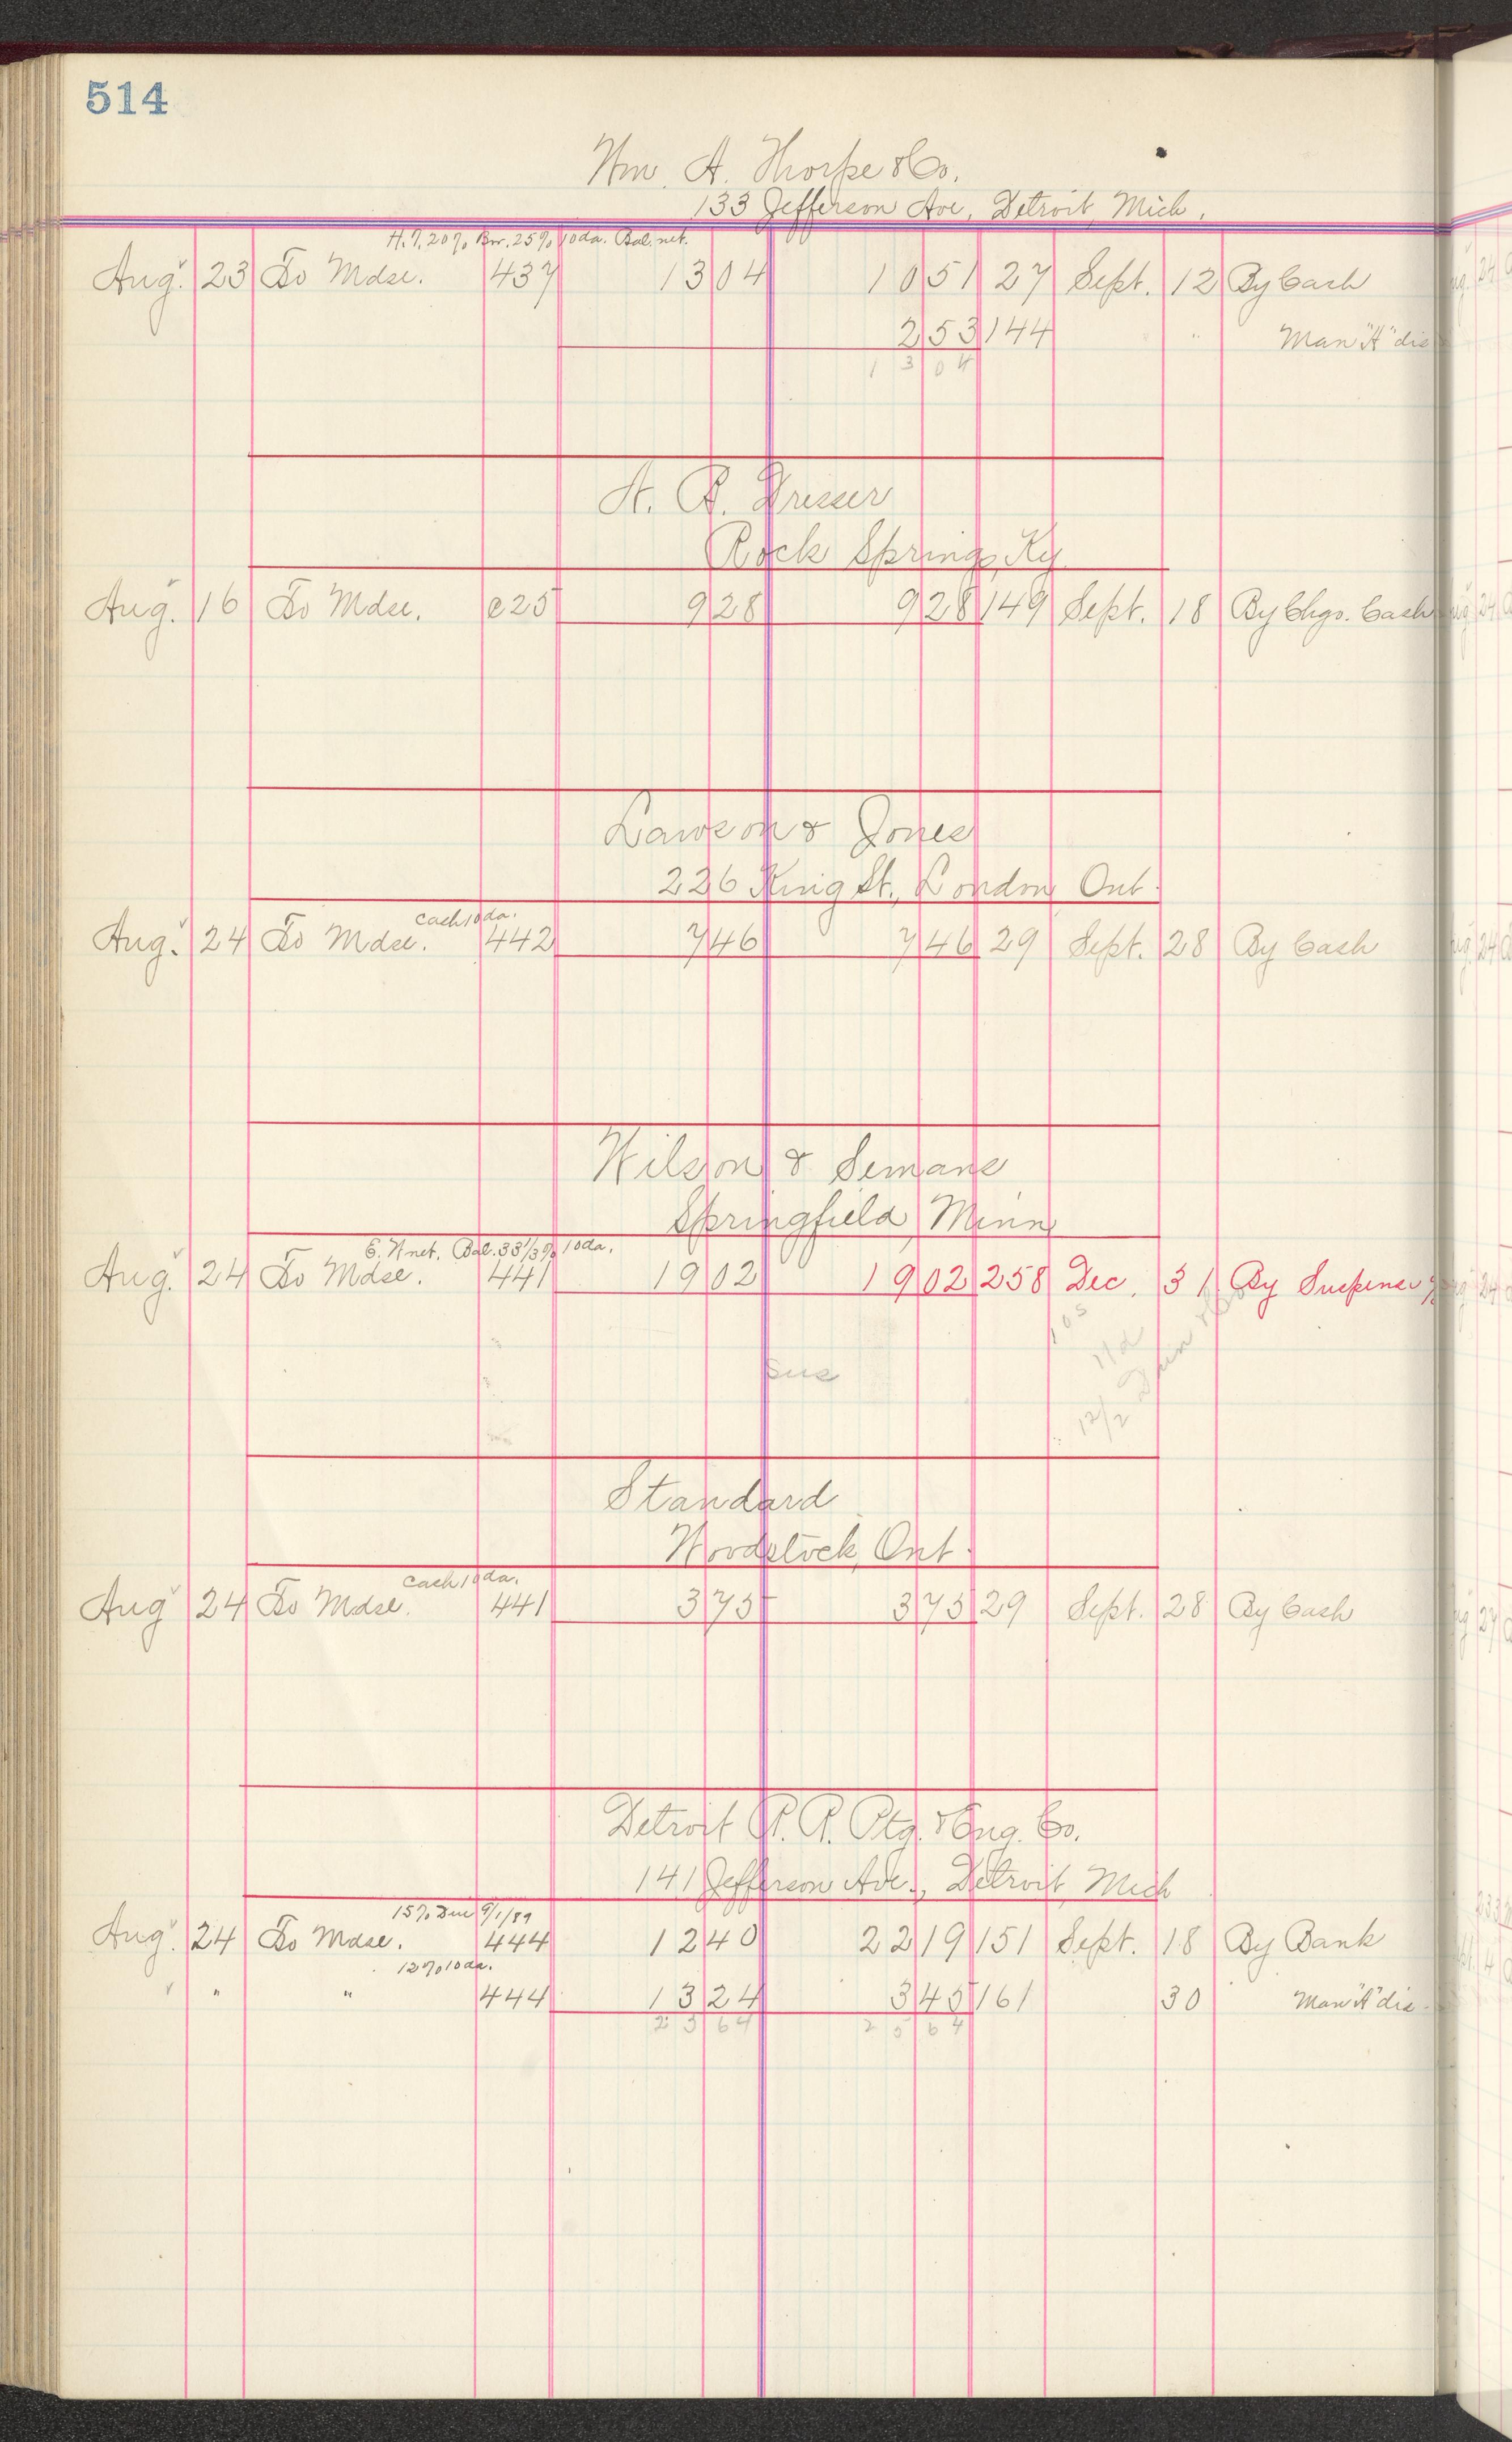 514
Wm. A. Thorpe & Co.
133 Jefferson Ave, Detroit, Mich.
H.T. 20% Bor. 25% 10da. Bal. net.
Aug. 23 To Mdse. 437 13 04 10 51 27 Sept. 12 By Cash
2 53 144 " Man "A" dis
13 04
A. R. Dresser
Rock Springs, Ky.
Aug. 16 To Mdse. e25 9 28 9 28 149 Sept. 18 By Chgo. Cash
Lawson & Jones
226 King St., London Ont.
Cash 10 da.
Aug. 24 To Mdse. 442 7 46 7 46 29 Sept. 28 By Cash
Wilson & Semans
Springfield, Minn
net. Bal. 33 1/3% 10da.
Aug. 24 To Mdse. 441 19 02 19 02 258 Dec. 31 By Suspense
105
Sus
12/2
Standard
Woodstock, Ont.
Cash 10 da.
Aug 24 To Mdse. 441 3 75 3 75 29 Sept. 28 By Cash
Detroit P. P. Ptg. & Eng. Co.
141 Jefferson Ave., Detroit, Mich
15% Due 9/1/89
Aug. 24 To Mdse. 444 12 40 22 19 151 Sept. 18 By Bank
12% 10 da.
" " 444 13 24 3 45 161 30 Man "A" dis
25 64 25 64